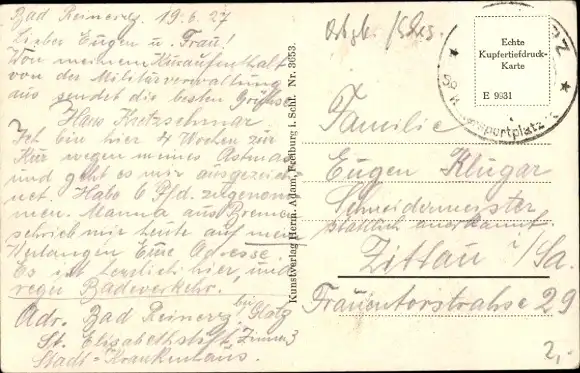 Bad Reinerz, 19.6.27
Lieber Eugen u. Frau!
Von meinem Kuraufenthalt
von der Militärverwaltung
aus sendet die besten Grüsse
Hans Kretzschmar
Ich bin hier 4 Wochen zur
Kur wegen meines Astmas
und geht es mir ausgezeich-
net. Habe 6 Pfd. zugenom-
men. Manna aus Bremen
schrieb mir heute auf mein
Verlangen Eure Adresse.
Es ist herrlich hier, und
reger Badeverkehr.
Adr. Bad Reinerz bei Glatz
St. Elisabethstift, Zimm. 3
Stadt-Krankenhaus.
Kunstverlag Herm. Adam, Freiburg i. Schl. Nr. 3653.
Echte
Kupfertiefdruck-
Karte
E 9931
sportplatz
Familie
Eugen Klugar
Schneidermeister
staatlich anerkannt.
Zittau i/Sa.
Frauentorstrahse 29
2,-